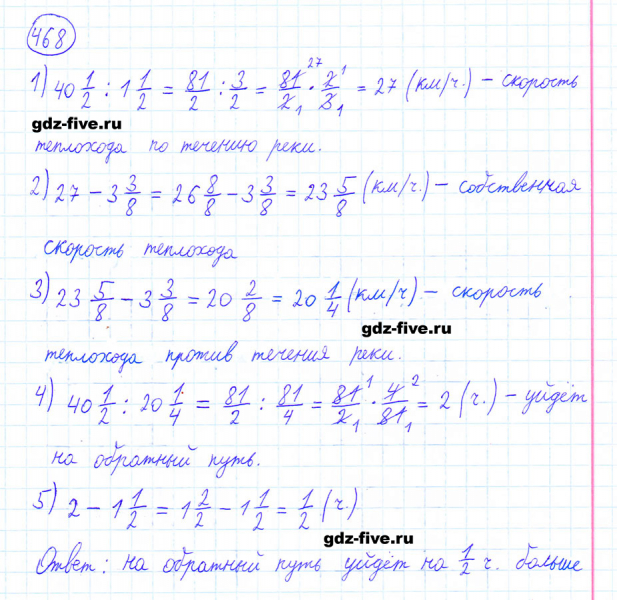 468
1) 40 1/2 : 1 1/2 = 81/2 : 3/2 = 81/2 · 2/3 = 27 (км/ч.) – скорость
gdz-five.ru
теплохода по течению реки.
2) 27 – 3 3/8 = 26 8/8 – 3 3/8 = 23 5/8 (км/ч.) – собственная
скорость теплохода
3) 23 5/8 – 3 3/8 = 20 2/8 = 20 1/4 (км/ч) – скорость
gdz-five.ru
теплохода против течения реки.
4) 40 1/2 : 20 1/4 = 81/2 : 81/4 = 81/2 · 4/81 = 2 (ч.) – уйдёт
на обратный путь.
5) 2 – 1 1/2 = 1 2/2 – 1 1/2 = 1/2 (ч.)
gdz-five.ru
Ответ: на обратный путь уйдёт на 1/2 ч. больше